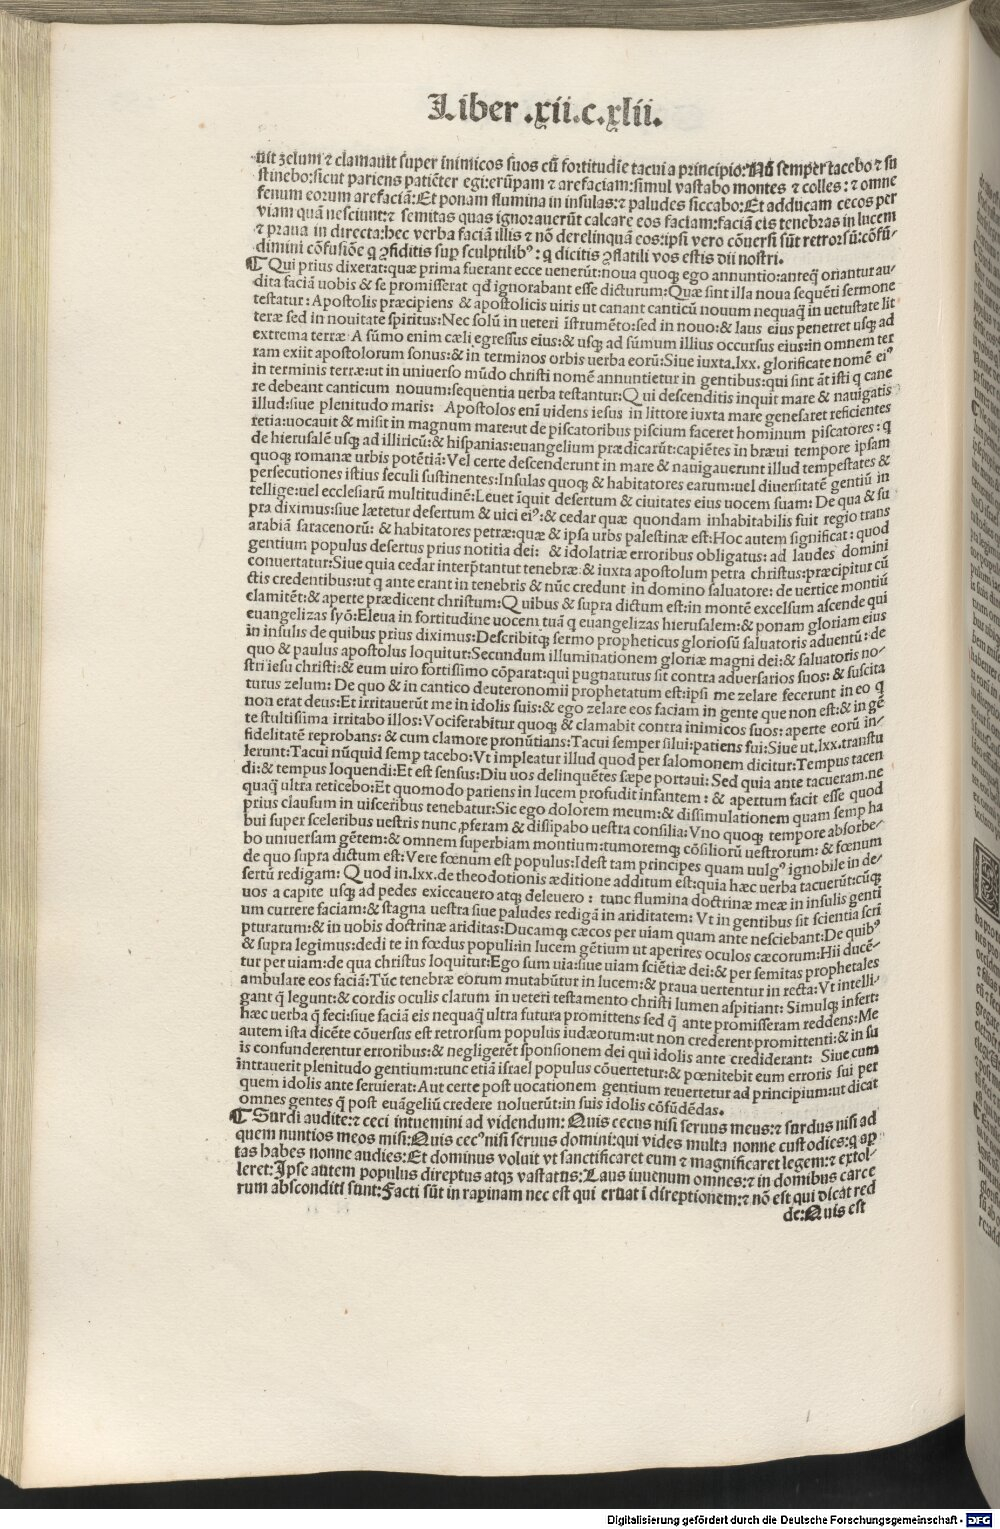 Liber .xii.c.xlii.
uit zelum ⁊ clamauit super inimicos suos cū fortitudīe tacui a principio: Nū semper tacebo ⁊ su
stinebo: sicut pariens patiēter egi: erūpam ⁊ arefaciam: simul vastabo montes ⁊ colles: ⁊ omne
fenum eorum arefaciā: Et ponam flumina in insulas: ⁊ paludes siccabo: Et adducam cecos per
viam quā nesciunt: ⁊ semitas quas ignorauerūt calcare eos faciam: faciā eis tenebras in lucem
⁊ praua in directa: hec verba faciā illis ⁊ nō derelinquā eos: ipsi vero cōuersi sūt retrorsū: cōfū-
dimini cōfusiōe q ꝯfiditis sup sculptilibꝰ: q dicitis ꝯflatili vos estis dii nostri.
¶ Qui prius dixerat: quæ prima fuerant ecce uenerūt: noua quoqꝫ ego annuntio: anteq̄ oriantur au-
dita faciā uobis & se promisserat qd ignorabant esse dicturum: Quæ sint illa noua sequēti sermone
testatur: Apostolis præcipiens & apostolicis uiris ut canant canticū nouum nequaq̄ in uetustate lit
teræ sed in nouitate spiritus: Nec solū in ueteri īstrumēto: sed in nouo: & laus eius penetret usqꝫ ad
extrema terræ A sūmo enim cæli egressus eius: & usqꝫ ad sūmum illius occursus eius: in omnem ter
ram exiit apostolorum sonus: & in terminos orbis uerba eorū: Siue iuxta .lxx. glorificate nomē eiꝰ
in terminis terræ: ut in uniuerso mūdo christi nomē annuntietur in gentibus: qui sint āt isti q cane
re debeant canticum nouum: sequentia uerba testantur: Qui descenditis inquit mare & nauigatis
illud: siue plenitudo maris: Apostolos enī uidens iesus in littore iuxta mare genesaret reficientes
retia: uocauit & misit in magnum mare: ut de piscatoribus piscium faceret hominum piscatores: q
de hierusalē usqꝫ ad illiricū: & hispanias: euangelium prædicarūt: capiētes in bræui tempore ipsam
quoqꝫ romanæ urbis potētiā: Vel certe descenderunt in mare & nauigauerunt illud tempestates &
persecutiones istius seculi sustinentes: Insulas quoqꝫ & habitatores earum: uel diuersitatē gentiū in
tellige: uel ecclesiarū multitudinē: Leuet īquit desertum & ciuitates eius uocem suam: De qua & su
pra diximus: siue lætetur desertum & uici eiꝰ: & cedar quæ quondam inhabitabilis fuit regio trans
arabiā saracenorū: & habitatores petræ: quæ & ipsa urbs palestinæ est: Hoc autem significat: quod
gentium populus desertus prius notitia dei: & idolatriæ erroribus obligatus: ad laudes domini
conuertatur: Siue quia cedar interp̄tantur tenebræ: & iuxta apostolum petra christus: præcipitur cū
ctis credentibus: ut q ante erant in tenebris & nūc credunt in domino saluatore: de uertice montiū
clamitēt: & aperte prædicent christum: Quibus & supra dictum est: in montē excelsum ascende qui
euangelizas syō: Eleua in fortitudine uocem tuā q euangelizas hierusalem: & ponam gloriam eius
in insulis de quibus prius diximus: Describitqꝫ sermo propheticus gloriosū saluatoris aduentū: de
quo & paulus apostolus loquitur: Secundum illuminationem gloriæ magni dei: & saluatoris no-
stri iesu christi: & eum uiro fortissimo cōparat: qui pugnaturus sit contra aduersarios suos: & suscita
turus zelum: De quo & in cantico deuteronomii prophetatum est: ipsi me zelare fecerunt in eo q
non erat deus: Et irritauerūt me in idolis suis: & ego zelare eos faciam in gente que non est: & in gē
te stultissima irritabo illos: Vociferabitur quoqꝫ & clamabit contra inimicos suos: aperte eorū in-
fidelitatē reprobans: & cum clamore pronūtians: Tacui semper silui: patiens fui: Siue ut .lxx. transtu
lerunt: Tacui nūquid semp tacebo: Vt impleatur illud quod per salomonem dicitur: Tempus tacen
di: & tempus loquendi: Et est sensus: Diu uos delinquētes sæpe portaui: Sed quia ante tacueram. ne
quaq̄ ultra reticebo: Et quomodo pariens in lucem profudit infantem: & apertum facit esse quod
prius clausum in uisceribus tenebatur: Sic ego dolorem meum: & dissimulationem quam semp ha
bui super sceleribus uestris nunc ꝓferam & dissipabo uestra consilia: Vno quoqꝫ tempore absorbe-
bo uniuersam gētem: & omnem superbiam montium: tumoremqꝫ cōsiliorū uestrorum: & fœnum
de quo supra dictum est: Vere fœnum est populus: Idest tam principes quam uulgꝰ ignobile in de-
sertū redigam: Quod in .lxx. de theodotionis æditione additum est: quia hæc uerba tacuerūt: cūqꝫ
uos a capite usqꝫ ad pedes exiccauero atqꝫ deleuero: tunc flumina doctrinæ meæ in insulis genti
um currere faciam: & stagna uestra siue paludes redigā in ariditatem: Vt in gentibus sit scientia scri
pturarum: & in uobis doctrinæ ariditas: Ducamqꝫ cæcos per uiam quam ante nesciebant: De quibꝰ
& supra legimus: dedi te in fœdus populi: in lucem gētium ut aperires oculos cæcorum: Hii ducē-
tur per uiam: de qua christus loquitur: Ego sum uia: siue uiam sciētiæ dei: & per semitas prophetales
ambulare eos faciā: Tūc tenebræ eorum mutabūtur in lucem: & praua uertentur in recta: Vt intelli-
gant q̄ legunt: & cordis oculis clarum in ueteri testamento christi lumen aspitiant: Simulqꝫ infert:
hæc uerba q̄ feci: siue faciā eis nequaq̄ ultra futura promittens sed q̄ ante promisseram reddens: Me
autem ista dicēte cōuersus est retrorsum populus iudæorum: ut non crederent promittenti: & in su
is confunderentur erroribus: & negligerēt sponsionem dei qui idolis ante crediderant: Siue cum
intrauerit plenitudo gentium: tunc etiā israel populus cōuertetur: & pœnitebit eum erroris sui per
quem idolis ante seruierat: Aut certe post uocationem gentium reuertetur ad principium: ut dicat
omnes gentes q̄ post euāgeliū credere noluerūt: in suis idolis cōfūdēdas.
¶ Surdi audite: ⁊ ceci intuemini ad videndum: Quis cecus nisi seruus meus: ⁊ surdus nisi ad
quem nuntios meos misi: Quis cecꝰ nisi seruus domini: qui vides multa nonne custodies: q ap
tas habes nonne audies: Et dominus voluit vt sanctificaret eum ⁊ magnificaret legem: ⁊ extol-
leret: Ipse autem populus direptus atqꝫ vastatus: Laus iuuenum omnes: ⁊ in domibus carce
rum absconditi sunt: Facti sūt in rapinam nec est qui eruat ī direptionem: ⁊ nō est qui dicat red
de: Quis est
Digitalisierung gefördert durch die Deutsche Forschungsgemeinschaft - DFG